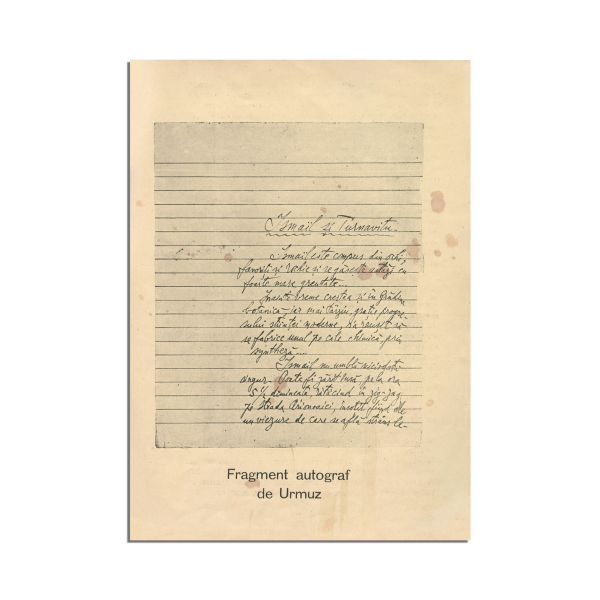 Ismail și Turnavitu.
Ismail este compus din ochi,
favoriți și rochie și se găsește astăzi cu
foarte mare greutate...
Înainte vreme creștea și în Grădina
botanică – iar mai târziu, grație progre-
sului științei moderne, s'a reușit să
se fabrice unul pe cale chimică, prin
synthesă...
Ismail nu umblă niciodată
singur. Poate fi zărit însă, pe la ora
5½ dimineața, rătăcind în zig-zag
pe strada Arionoaiei, însoțit fiind de
un viezure de care se află strâns le-
Fragment autograf
de Urmuz